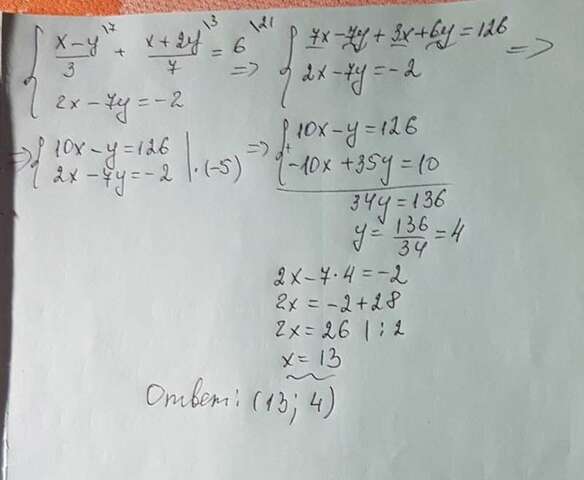 { (x-y)/3 \7 + (x+2y)/7 \3 = 6 \21 => { 7x-7y+3x+6y=126 =>
2x-7y=-2 2x-7y=-2
=> { 10x-y=126 => { 10x-y=126
2x-7y=-2 |·(-5) + -10x+35y=10
34y=136
y= 136/34 =4
2x-7·4=-2
2x=-2+28
2x=26 |:2
x=13
Ответ: (13; 4)